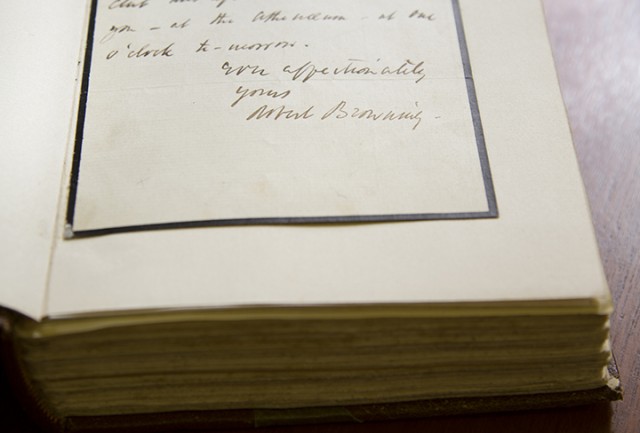 you – at the Athenæum – at one
o'clock to-morrow.
Ever affectionately
yours
Robert Browning –